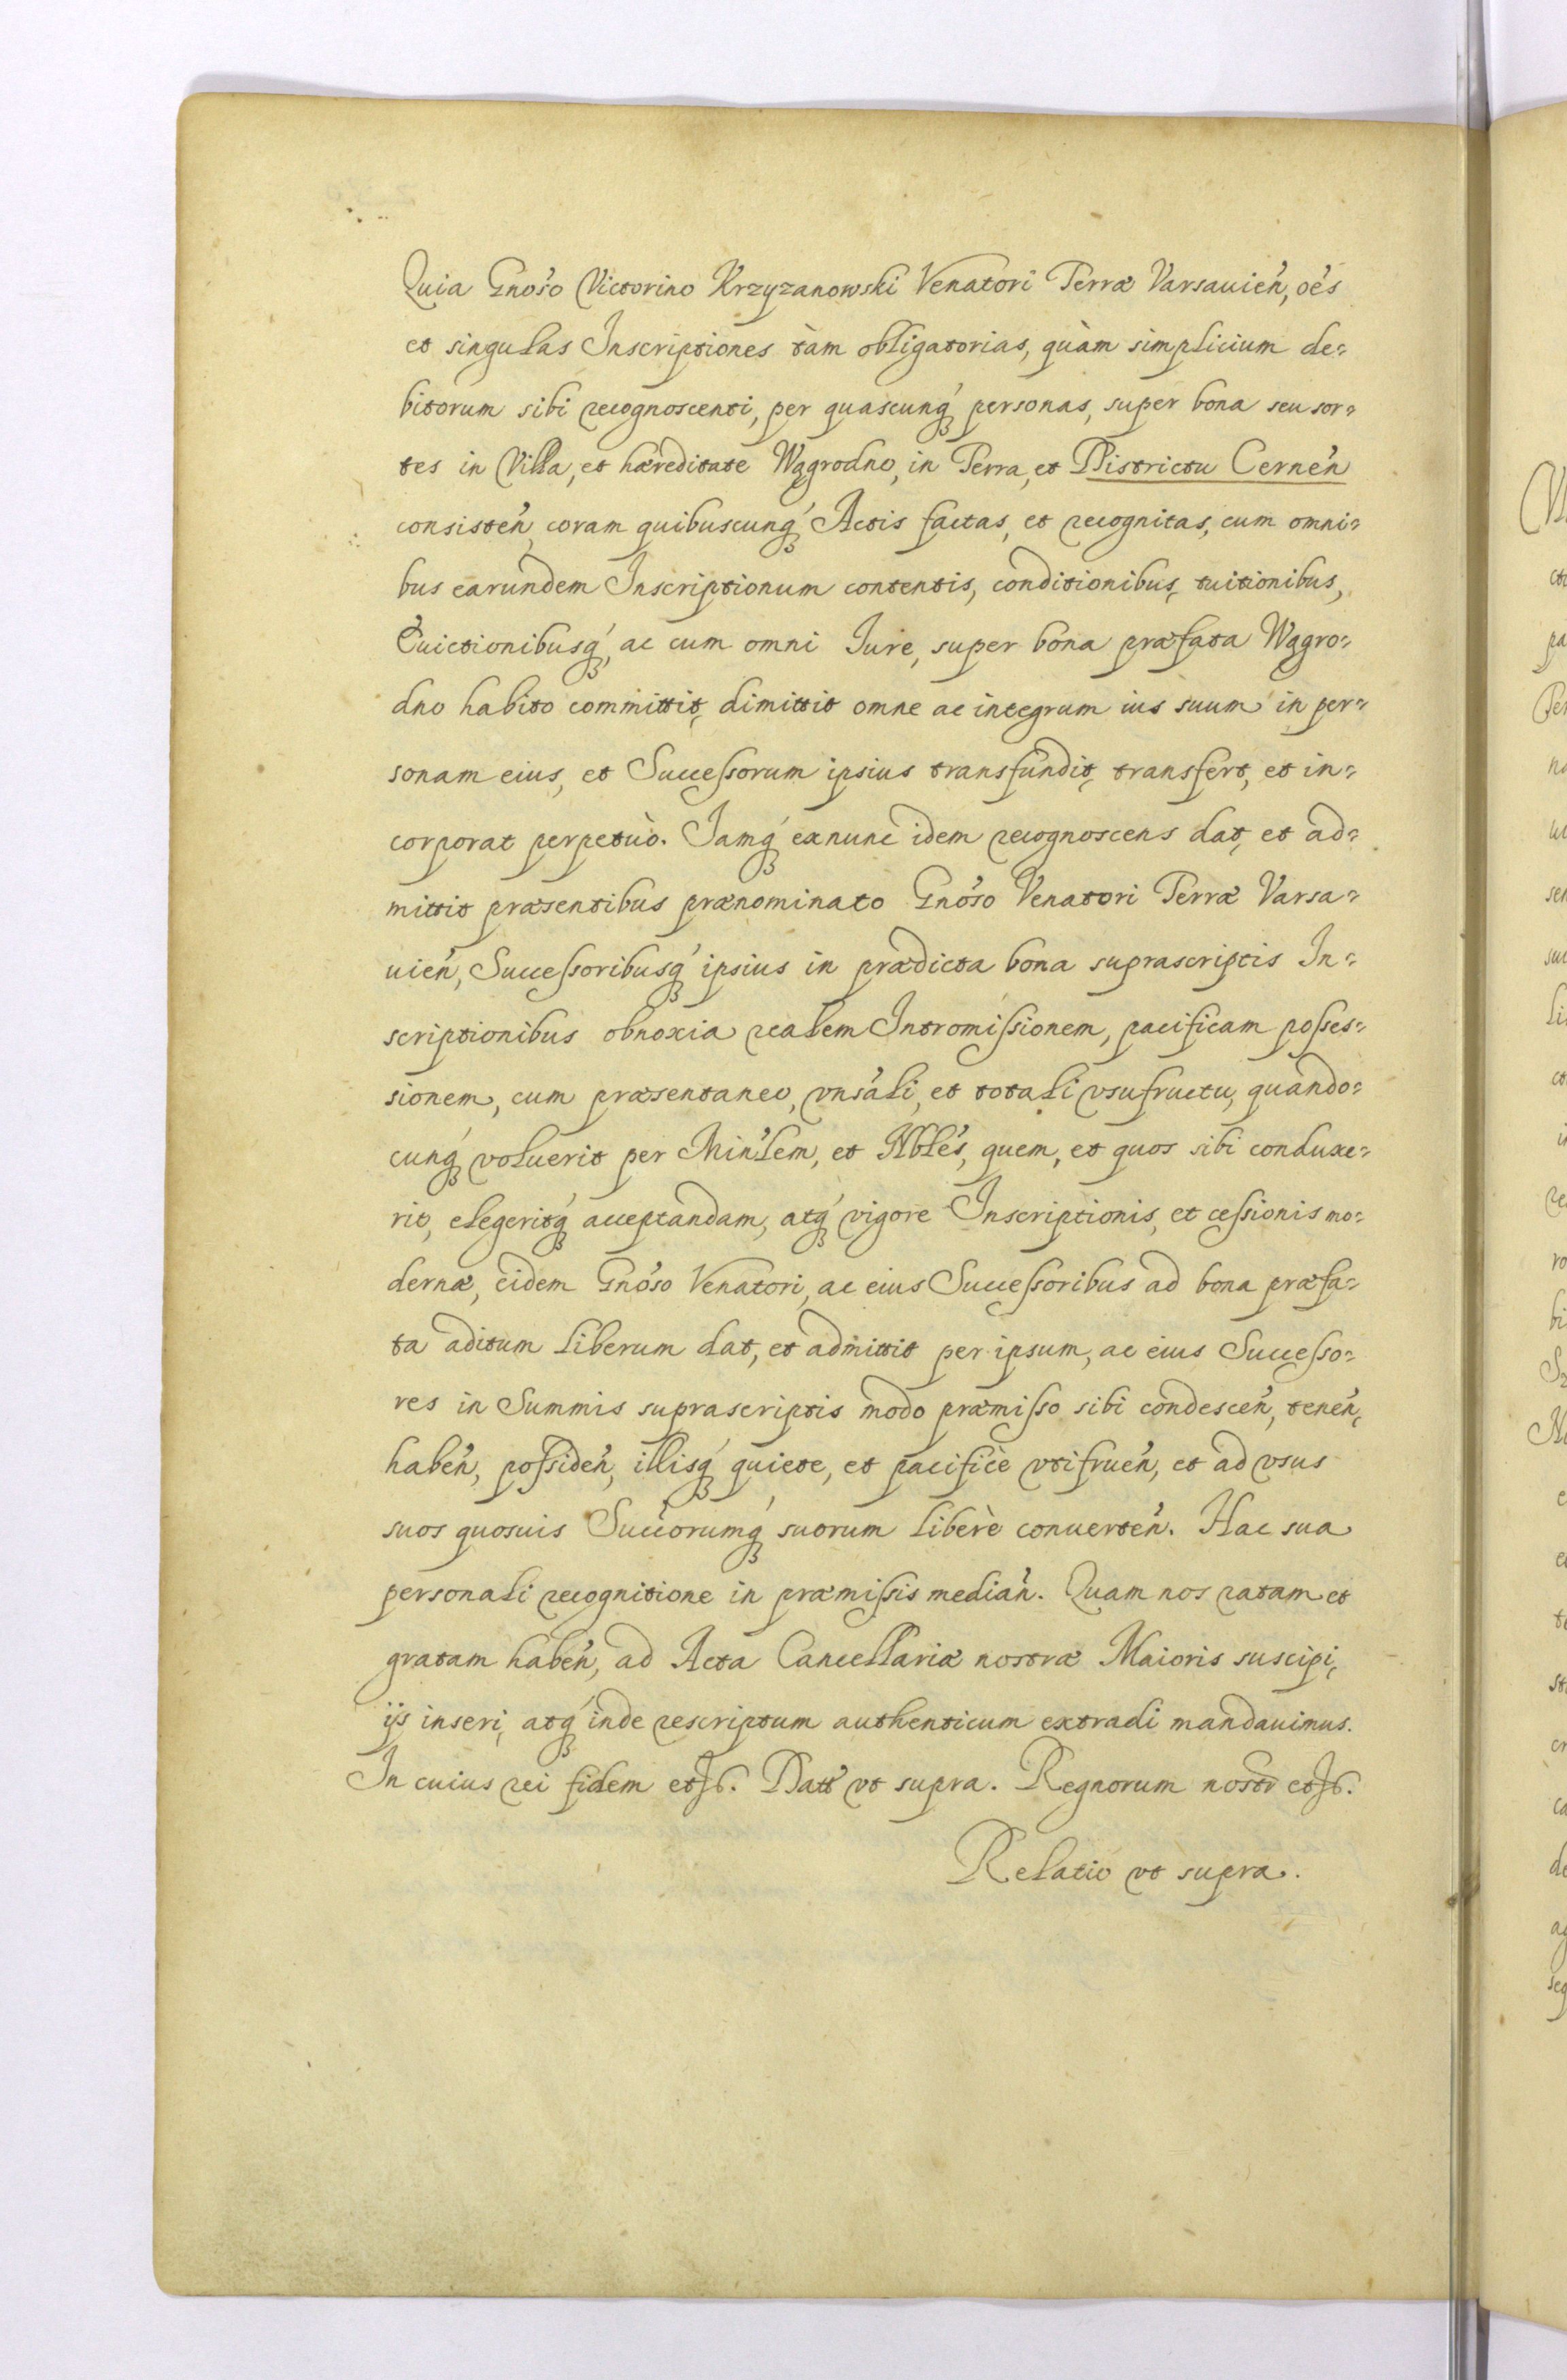 Quia Gnoso Victorino Krzyzanowski Venatori Terræ Varsauien̄, oēs
et singulas Inscriptiones tàm obligatorias, quàm simplicium de=
bitorum sibi recognoscenti, per quascunq́ personas, super bona seu sor=
tes in Villa, et hæreditate Wągrodno, in Terra, et Districtu Cernen̄
consisten̄, coram quibuscunq́ Actis factas, et recognitas, cum omni=
bus earundem Inscriptionum contentis, conditionibus, tuitionibus,
Euictionibusq́, ac cum omni Iure, super bona præfata Wągro=
dno habito committit, dimittit omne ac integrum ius suum in per=
sonam eius, et Successorum ipsius transfundit, transfert, et in=
corporat perpetuò. Iamq́ exnunc idem recognoscens dat, et ad=
mittit præsentibus prænominato Gnoso Venatori Terræ Varsa=
uien̄, Successoribusq́ ipsius in prædicta bona suprascriptis In=
scriptionibus obnoxia realem Intromissionem, pacificam posses=
sionem, cum præsentaneo, vnsali, et totali vsufructu, quando=
cunq́ voluerit per Minlem, et Nbles, quem, et quos sibi conduxe=
rit, elegeritq́ acceptandam, atq́ vigore Inscriptionis, et cessionis mo=
dernæ, eidem Gnoso Venatori, ac eius Successoribus ad bona præfa=
ta aditum liberum dat, et admittit per ipsum, ac eius Successo=
res in Summis suprascriptis modo præmisso sibi condescen̄, tenen̄,
haben̄, possiden̄, illisq́ quiete, et pacificè vtifruen̄, et ad vsus
suos quosuis Succorumq́ suorum liberè conuerten̄. Hac sua
personali recognitione in præmissis median̄. Quam nos ratam et
gratam haben̄, ad Acta Cancellariæ nostræ Maioris suscipi,
ijs inseri, atq́ inde rescriptum authenticum extradi mandauimus.
In cuius rei fidem etc. Datt vt supra. Regnorum nostr etc.
Relatio vt supra.